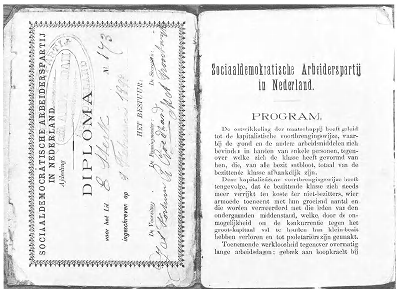 SOCIAALDEMOKRATISCHE ARBEIDERSPARTIJ
IN NEDERLAND.
Afdeeling
DIPLOMA
No 173
voor het lid
ingeschreven op
HET BESTUUR,
De Voorzitter,
De Penningmeester,
De Secretaris,
Sociaaldemokratische Arbeiderspartij
in Nederland.
PROGRAM.
De ontwikkeling der maatschappij heeft geleid
tot de kapitalistische voortbrengingswijze, waar-
bij de grond en de andere arbeidsmiddelen zich
bevinden in handen van enkele personen, tegen-
over welke zich de klasse heeft gevormd van
hen, die, van alle bezit ontbloot, totaal van de
bezittende klasse afhankelijk zijn.
Deze kapitalistische voortbrengingswijze heeft
tengevolge, dat de bezittende klasse zich steeds
meer verrijkt ten koste der niet-bezitters, wier
armoede toeneemt met hun groeiend aantal en
die worden vermeerderd met die leden van den
ondergaanden middenstand, welke, door de on-
mogelijkheid om de konkurrentie tegen het
groot-kapitaal vol te houden hun klein-bezit
hebben verloren en tot proletariërs zijn gemaakt.
Toenemende werkloosheid tegenover overmatig
lange arbeidsdagen; gebrek aan loopkracht bij